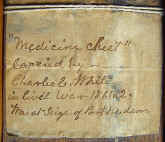 "Medicine Chest"
Carried by
Charles C. White
in Civil War - 1861-2
Was at Seige of Port Hudson